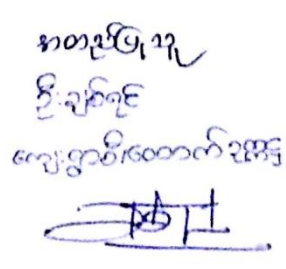 အတည်ပြုသူ
ဦးချစ်ရင်
ကျေးရွာစီးထောက်ဥက္ကဋ္ဌ